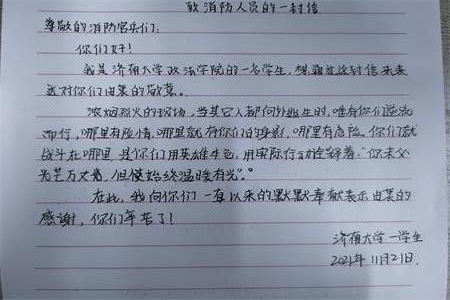 致消防人员的一封信
尊敬的消防官兵们:
你们好!
我是济南大学政法学院的一名学生,想通过这封信来表
达对你们由衷的敬意。
浓烟烈火的现场,当其它人都向外逃生时,唯有你们逆流
而行,哪里有险情,哪里就有你们的身影,哪里有危险,你们就
战斗在哪里,是你们用英雄本色,用实际行动诠释着:“你未必
光芒万丈,但始终温暖有光”。
在此,我向你们一直以来的默默奉献表示由衷的
感谢,你们辛苦了!
济南大学一学生
2021年11月21日.